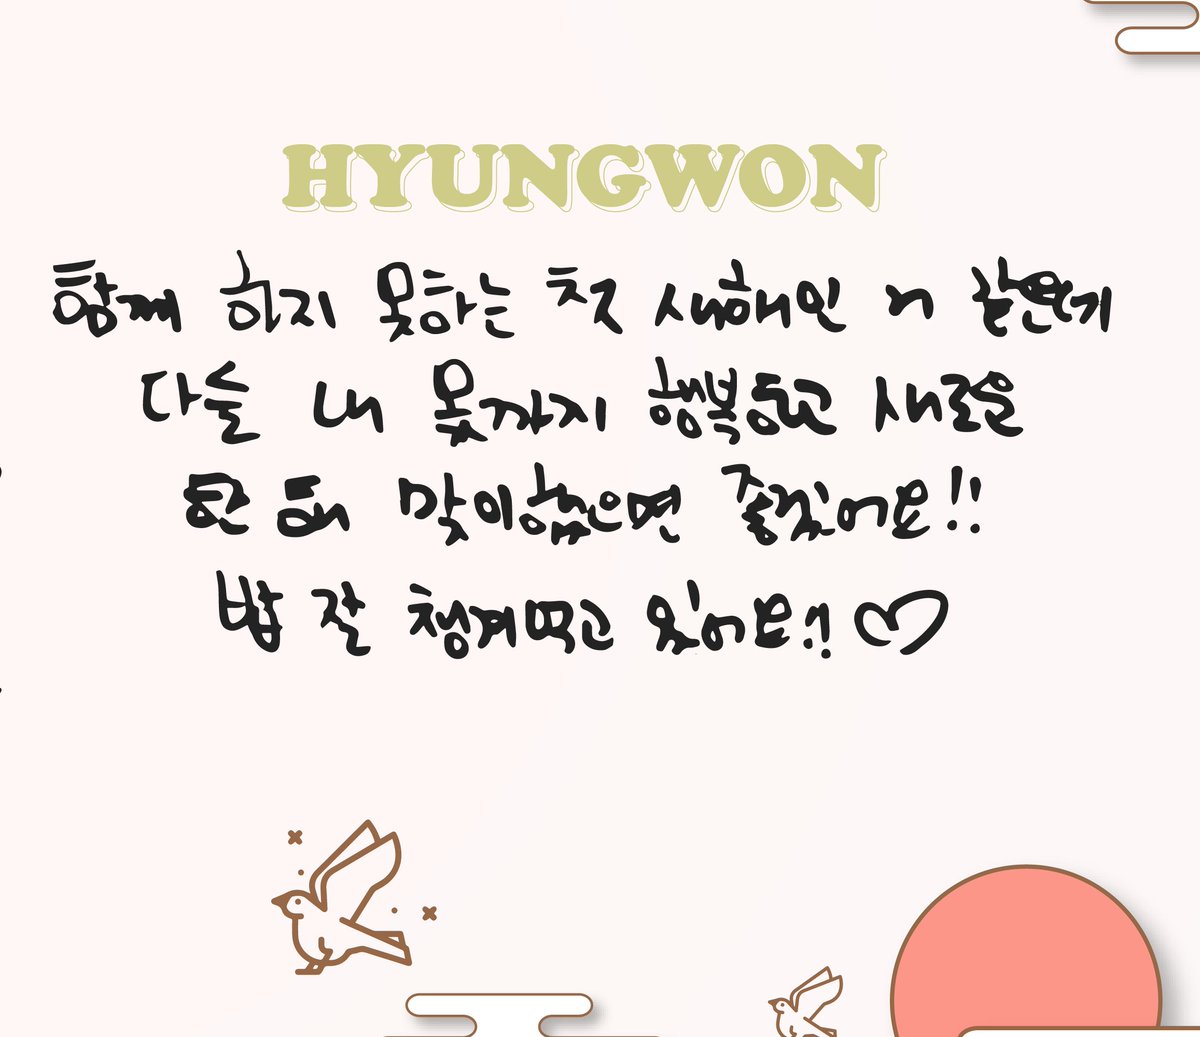 HYUNGWON
함께 하지 못하는 첫 새해인 거 같은데
다들 내 몫까지 행복하고 새로운
한 해 맞이했으면 좋겠어요!!
밥 잘 챙겨먹고 있어요!! ♡